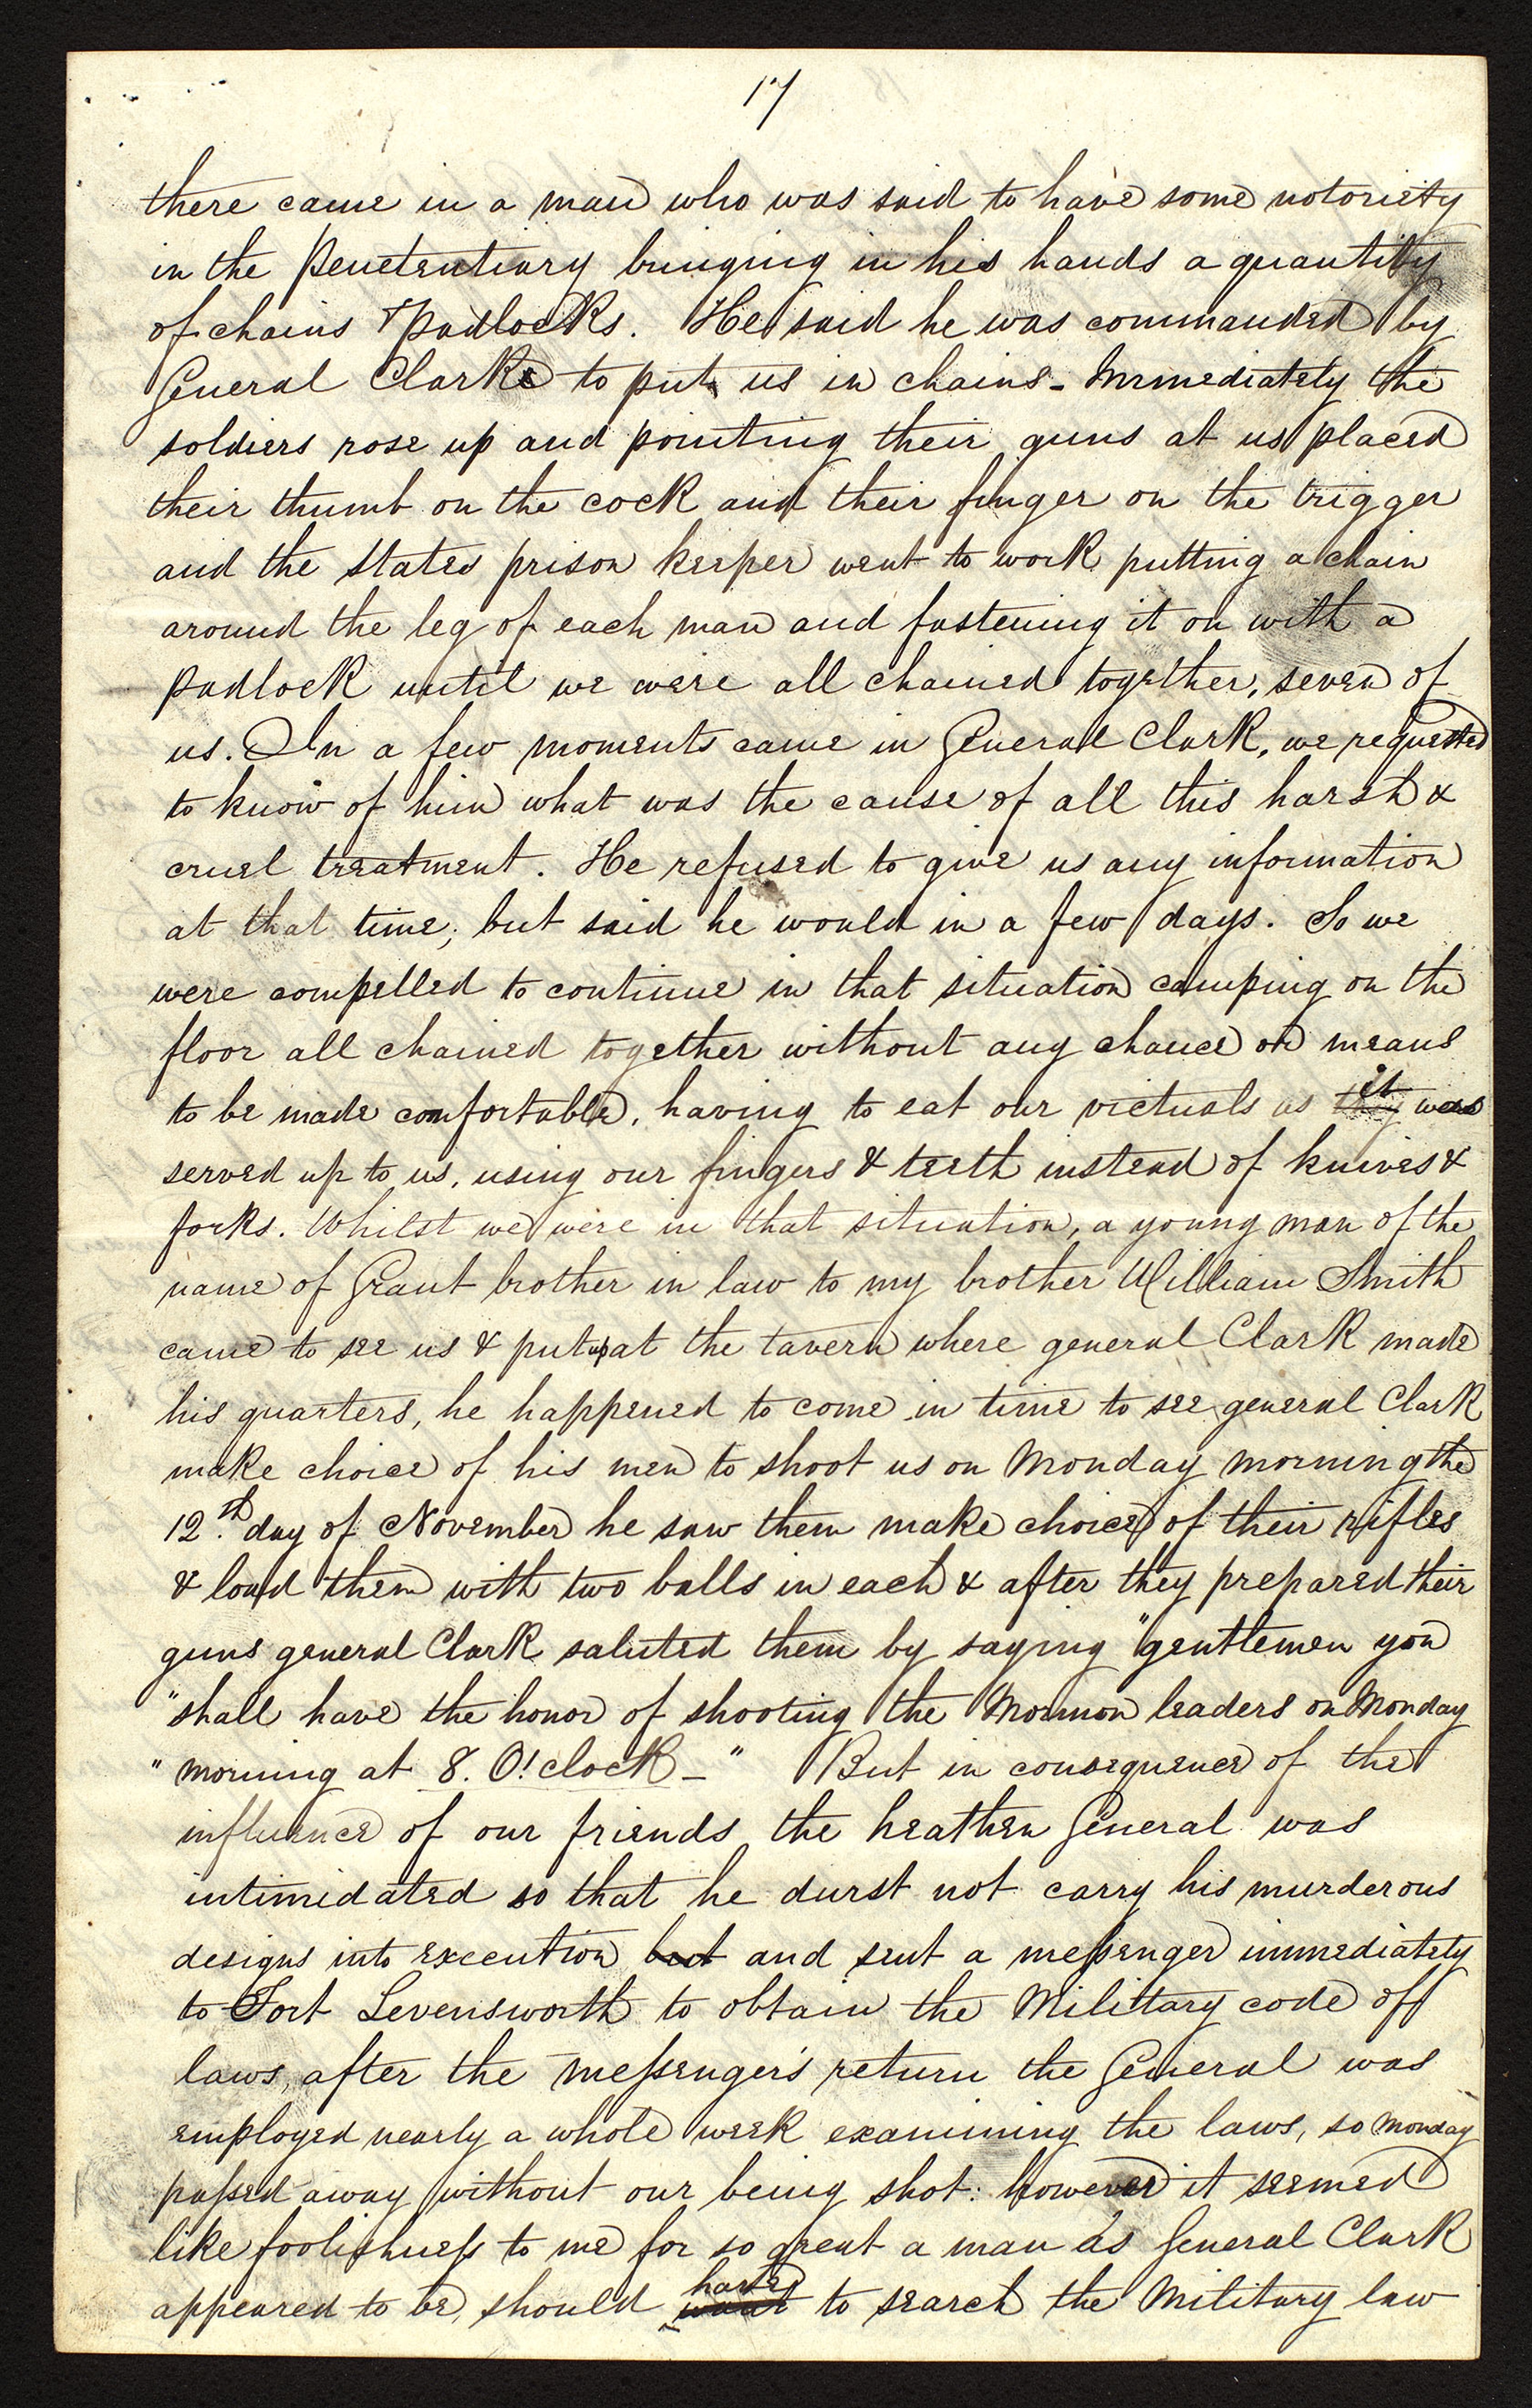 17
there came in a man who was said to have some notoriety
in the penetentiary bringing in his hands a quantity
of chains & padlocks. He said he was commanded by
General Clark to put us in chains - Immediately the
soldiers rose up and pointing their guns at us placed
their thumb on the cock and their finger on the trigger
and the states prison keeper went to work putting a chain
around the leg of each man and fastening it on with a
padlock until we were all chained together, seven of
us. In a few moments came in General Clark, we requested
to know of him what was the cause of all this harsh &
cruel treatment. He refused to give us any information
at that time; but said he would in a few days. So we
were compelled to continue in that situation camping on the
floor all chained together without any chance or means
to be made comfortable, having to eat our victuals as they it was
served up to us, using our fingers & teeth instead of knives &
forks. Whilst we were in that situation, a young man of the
name of Grant brother in law to my brother William Smith
came to see us & put up at the tavern where general Clark made
his quarters, he happened to come in time to see general Clark
make choice of his men to shoot us on Monday morning the
12th. day of November he saw them make choice of their rifles
& load them with two balls in each & after they prepared their
guns general Clark saluted them by saying "gentlemen you
"shall have the honor of shooting the Mormon leaders on Monday
"morning at 8. O'clock - " But in consequence of the
influence of our friends the heathen General was
intimidated so that he durst not carry his murderous
designs into execution but and sent a messenger immediately
to Fort Levensworth to obtain the Military code of
laws, after the messenger's return the General was
employed nearly a whole week examining the laws, so Monday
passed away without our being shot: however it seemed
like foolishness to me for so great a man as General Clark
appeared to be, should have to search the Military law